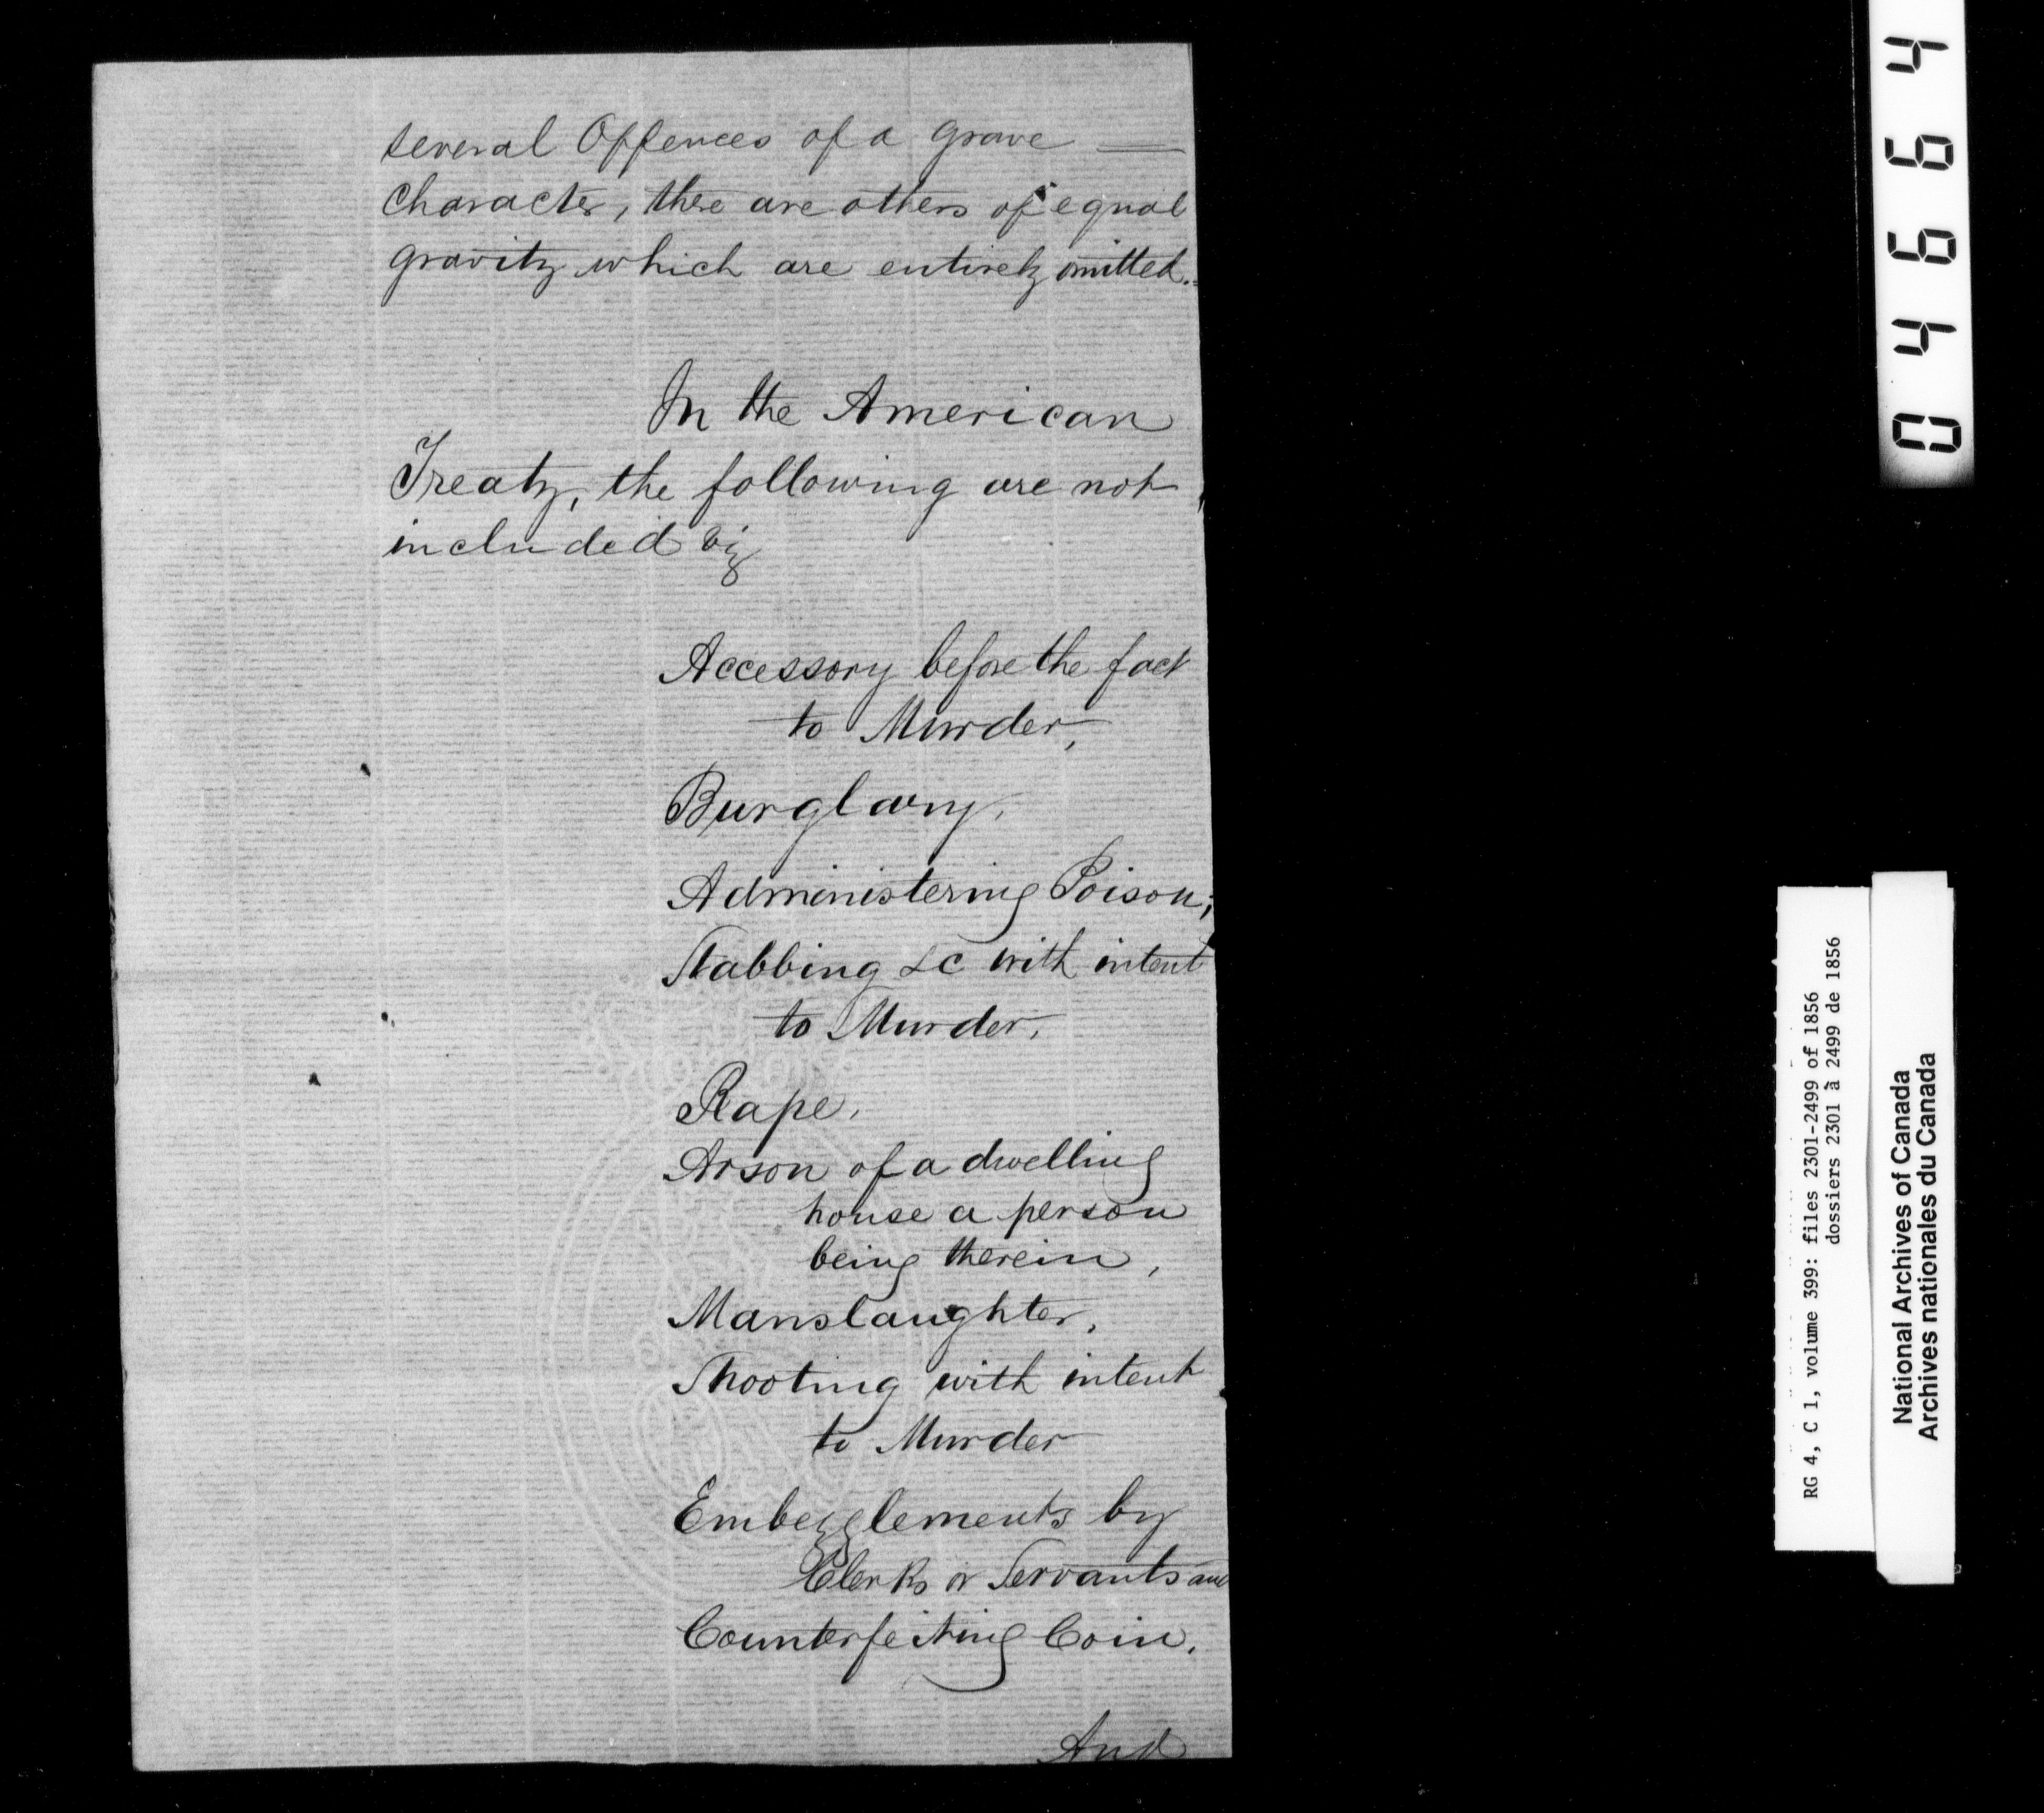 several Offences of a grave —
character, there are others of equal
gravity which are entirely omitted.
In the American
Treaty, the following are not
included viz
Accessory before the fact
to Murder,
Burglary,
Administering Poison,
Stabbing &c with intent
to Murder,
Rape,
Arson of a dwelling
house a person
being therein,
Manslaughter,
Shooting with intent
to Murder
Embezzlements by
Clerks or Servants and
Counterfeiting Coin.
And
04664
RG 4, C 1, volume 399: files 2301-2499 of 1856
dossiers 2301 à 2499 de 1856
National Archives of Canada
Archives nationales du Canada